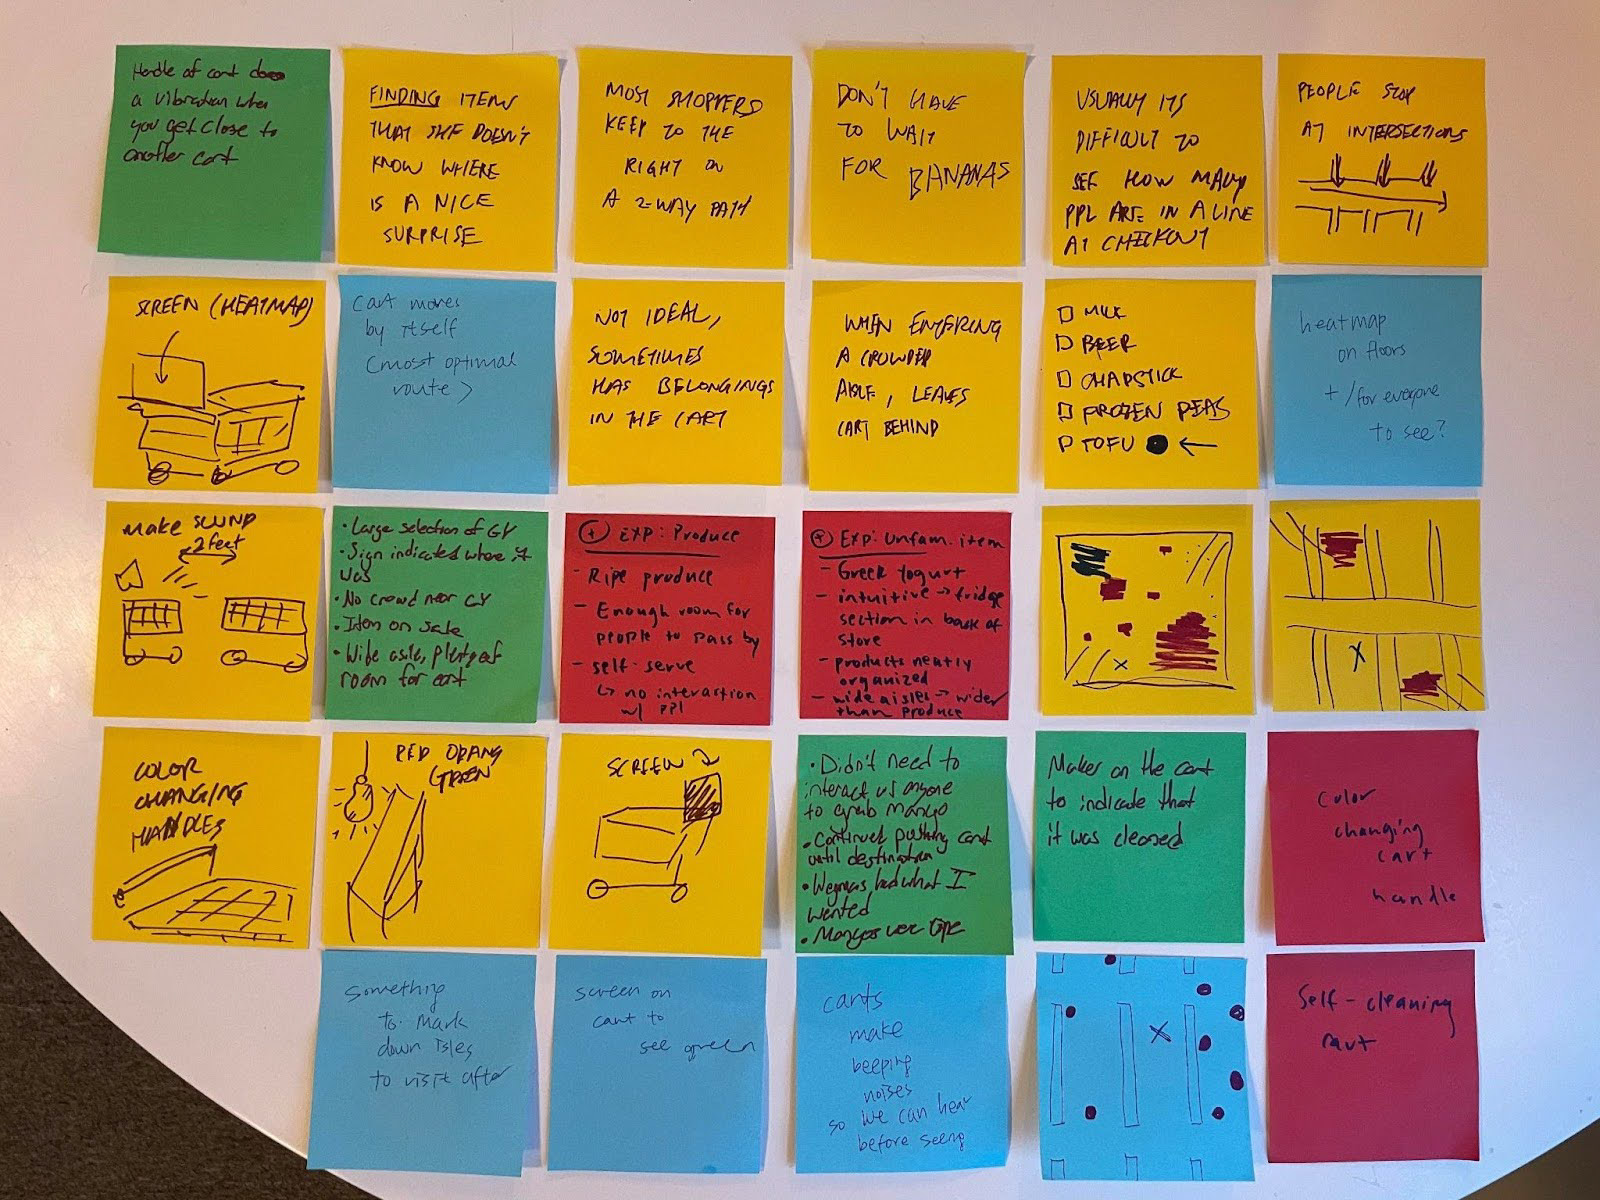 Handle of cart does
a vibration when
you get close to
another cart
FINDING ITEMS
THAT SHE DOESN'T
KNOW WHERE
IS A NICE
SURPRISE
MOST SHOPPERS
KEEP TO THE
RIGHT ON
A 2-WAY PATH
DON'T HAVE
TO WAIT
FOR BANANAS
USUALLY ITS
DIFFICULT TO
SEE HOW MANY
PPL ARE IN A LINE
AT CHECKOUT
PEOPLE STOP
AT INTERSECTIONS
SCREEN (HEATMAP)
Cart moves
by itself
(most optimal
route)
NOT IDEAL,
SOMETIMES
HAS BELONGINGS
IN THE CART
WHEN ENTERING
A CROWDED
AISLE, LEAVES
CART BEHIND
MILK
BEER
CHAPSTICK
FROZEN PEAS
TOFU
heatmap
on floors
+ / for everyone
to see?
make SOUND
2 feet
• Large selection of GY
• Sign indicated where it
was
• No crowd near GY
• Item on sale
• Wide asile, plenty of
room for cart
+ EXP: Produce
- Ripe produce
- Enough room for
people to pass by
- self-serve
↳ no interaction
w/ PPL
+ EXP: Unfam. item
- Greek yogurt
- intuitive → fridge
section in back of
store
- products neatly
organized
- wide aisles → wider
than produce
X
X
COLOR
CHANGING
HANDLES
RED ORANG
GREEN
SCREEN
• Didn't need to
interact w anyone
to grab mango
• Continued pushing cart
until destination
• Wegmas had what I
wanted
• Mangos were ripe
Maker on the cart
to indicate that
it was cleaned
Color
changing
cart
handle
Something
to mark
down isles
to visit after
screen on
cart to
see green
carts
make
beeping
noises
so we can hear
before seeing
X
Self-cleaning